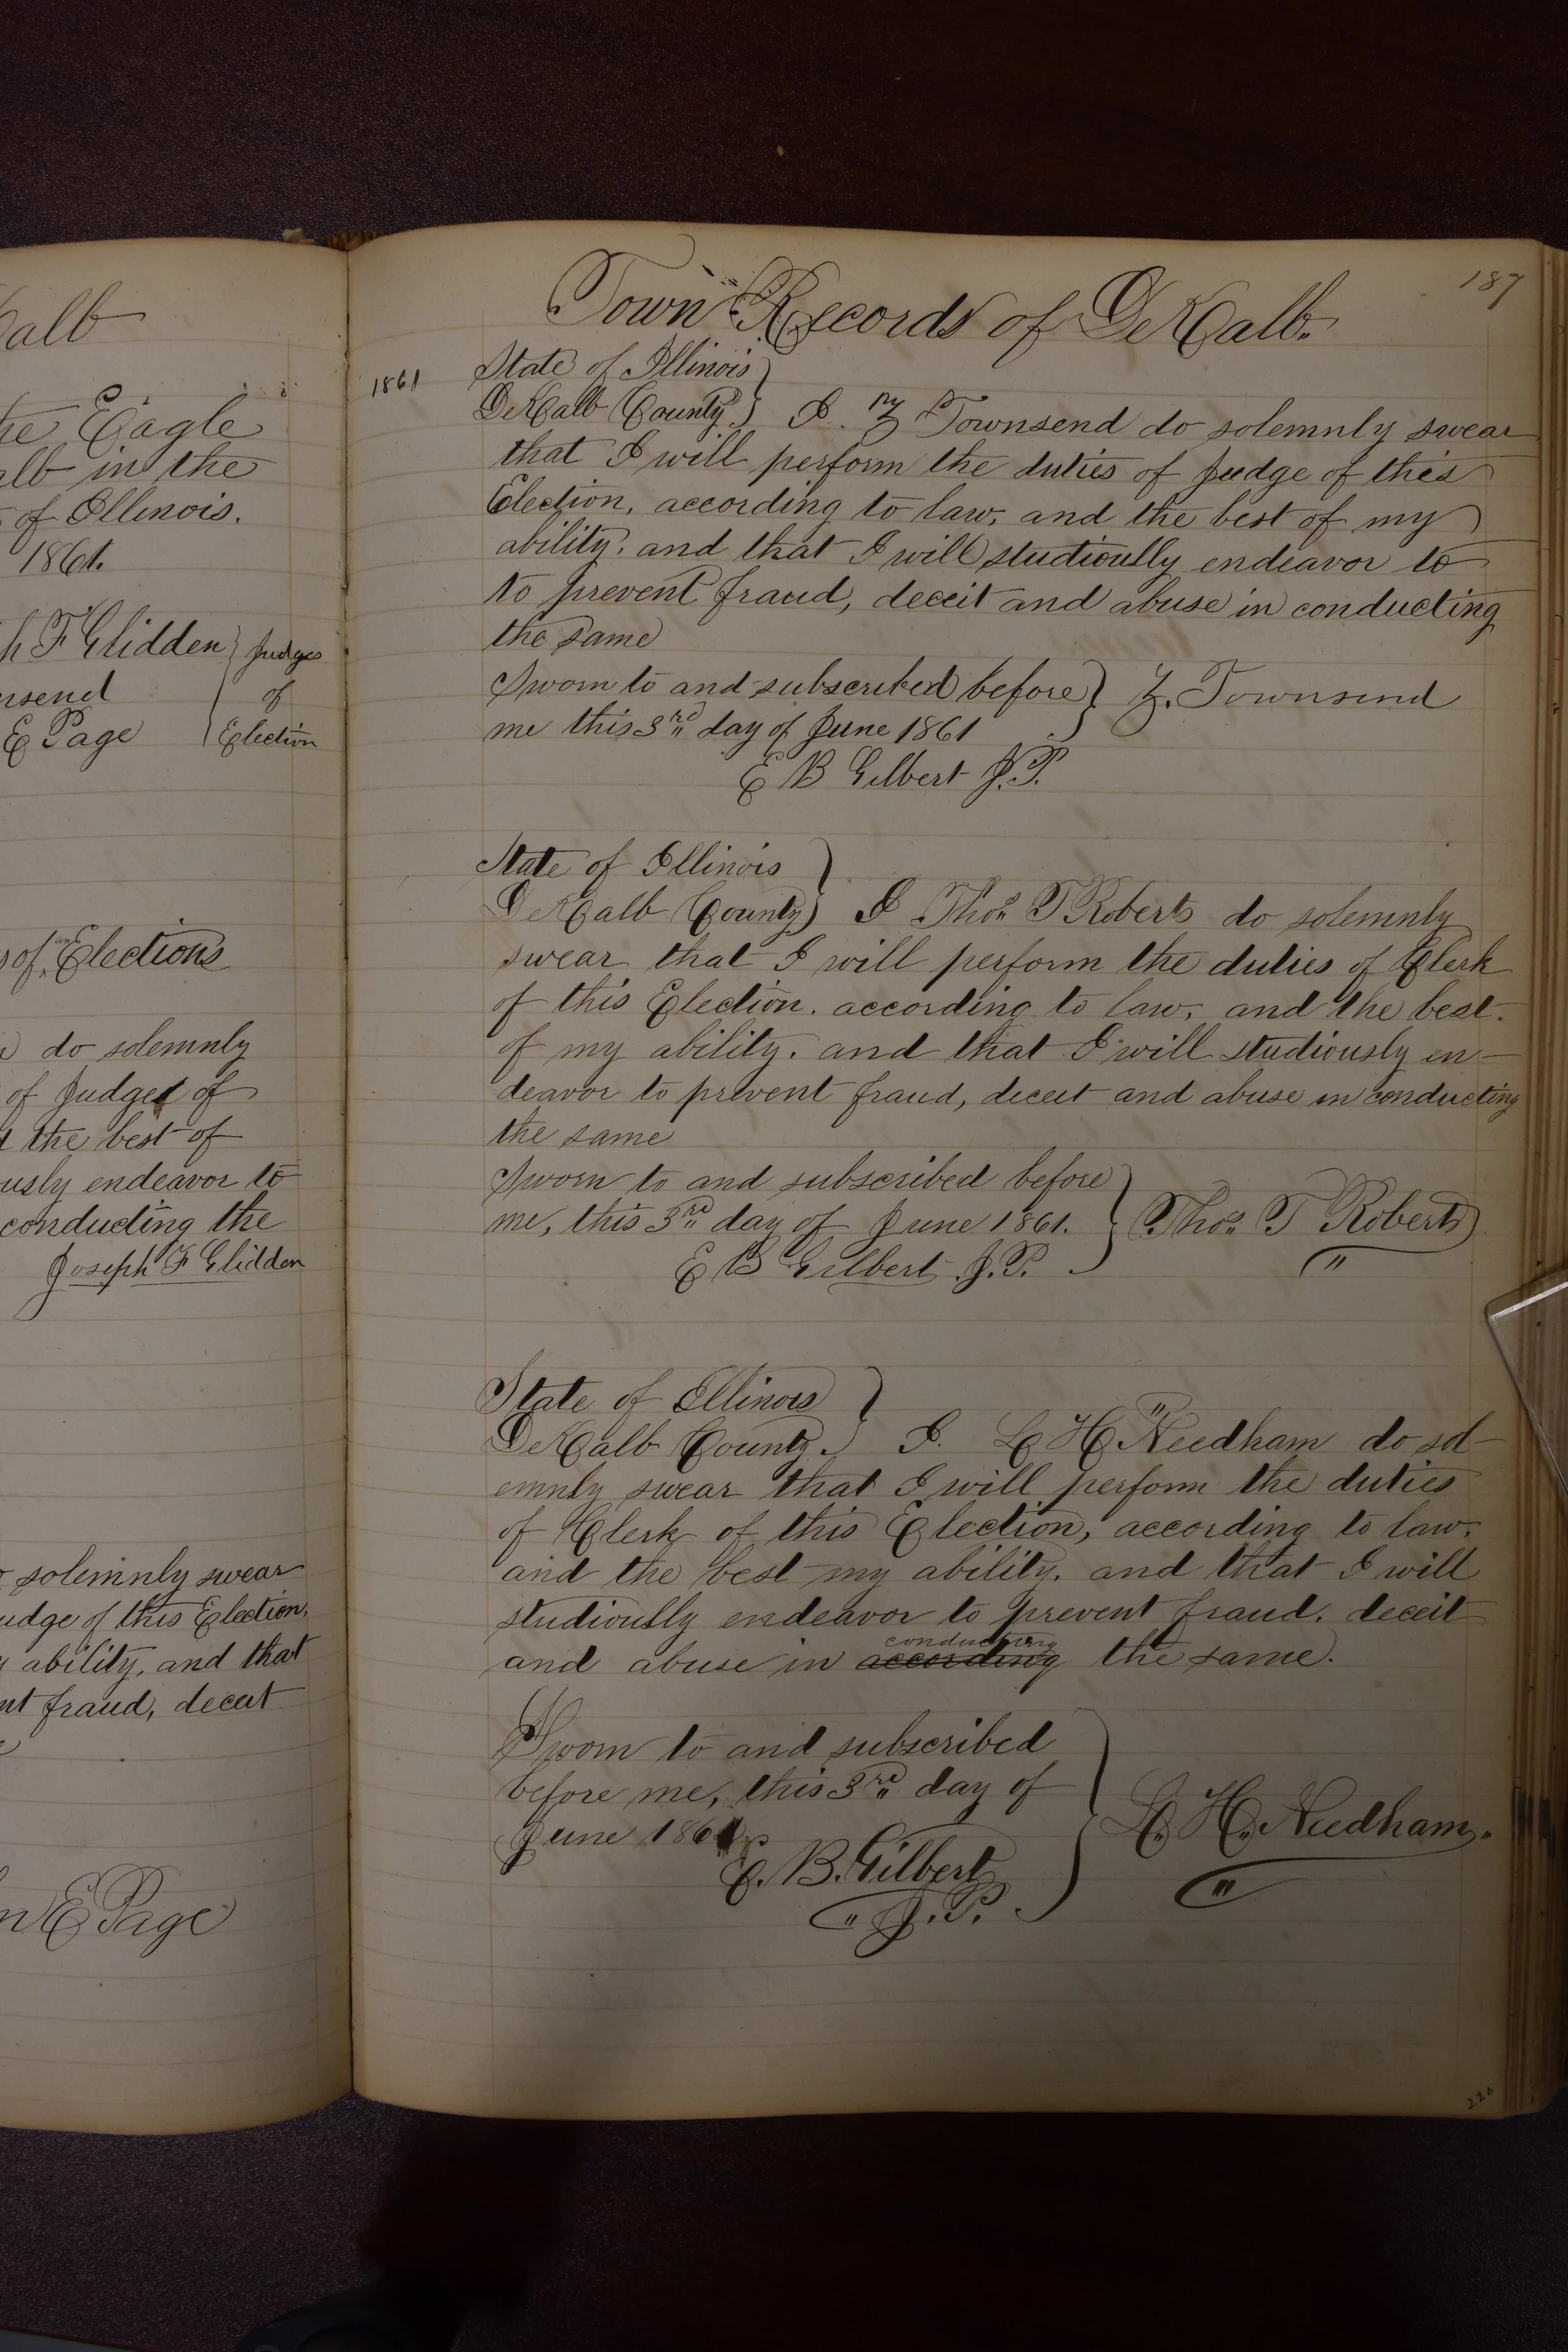 alb
the Eagle
alb in the
of Illinois.
1861.
h F Glidden } Judges
nsend of
E Page Election
s of an Elections
do solemnly
of Judges of
the best of
usly endeavor to
conducting the
Joseph F Glidden
solemnly swear
udge of this Election,
ability, and that
nt fraud, deceit
n E Page
187
Town Records of DeKalb.
1861
State of Illinois }
DeKalb County } I. Z Townsend do solemnly swear
that I will perform the duties of Judge of this
Election, according to law, and the best of my
ability, and that I will studiously endeavor to
to prevent fraud, deceit and abuse in conducting
the same
Sworn to and subscribed before } Z. Townsend
me this 3rd day of June 1861
E B Gilbert J.P.
State of Illinois }
DeKalb County } I Thos T Roberts do solemnly
swear that I will perform the duties of Clerk
of this Election. according to law, and the best
of my ability. and that I will studiously en-
deavor to prevent fraud, deceit and abuse in conducting
the same
Sworn to and subscribed before
me, this 3rd day of June 1861. } Thos T Roberts
E B Gilbert J.P.
State of Illinois }
DeKalb County. } I. L H Needham do sol-
emnly swear that I will perform the duties
of Clerk of this Election, according to law,
and the best my ability. and that I will
studiously endeavor to prevent fraud. deceit
conducting
and abuse in according the same.
Sworn to and subscribed
before me, this 3rd day of
June 1861. } L. H. Needham.
E. B. Gilbert
J. P.
220